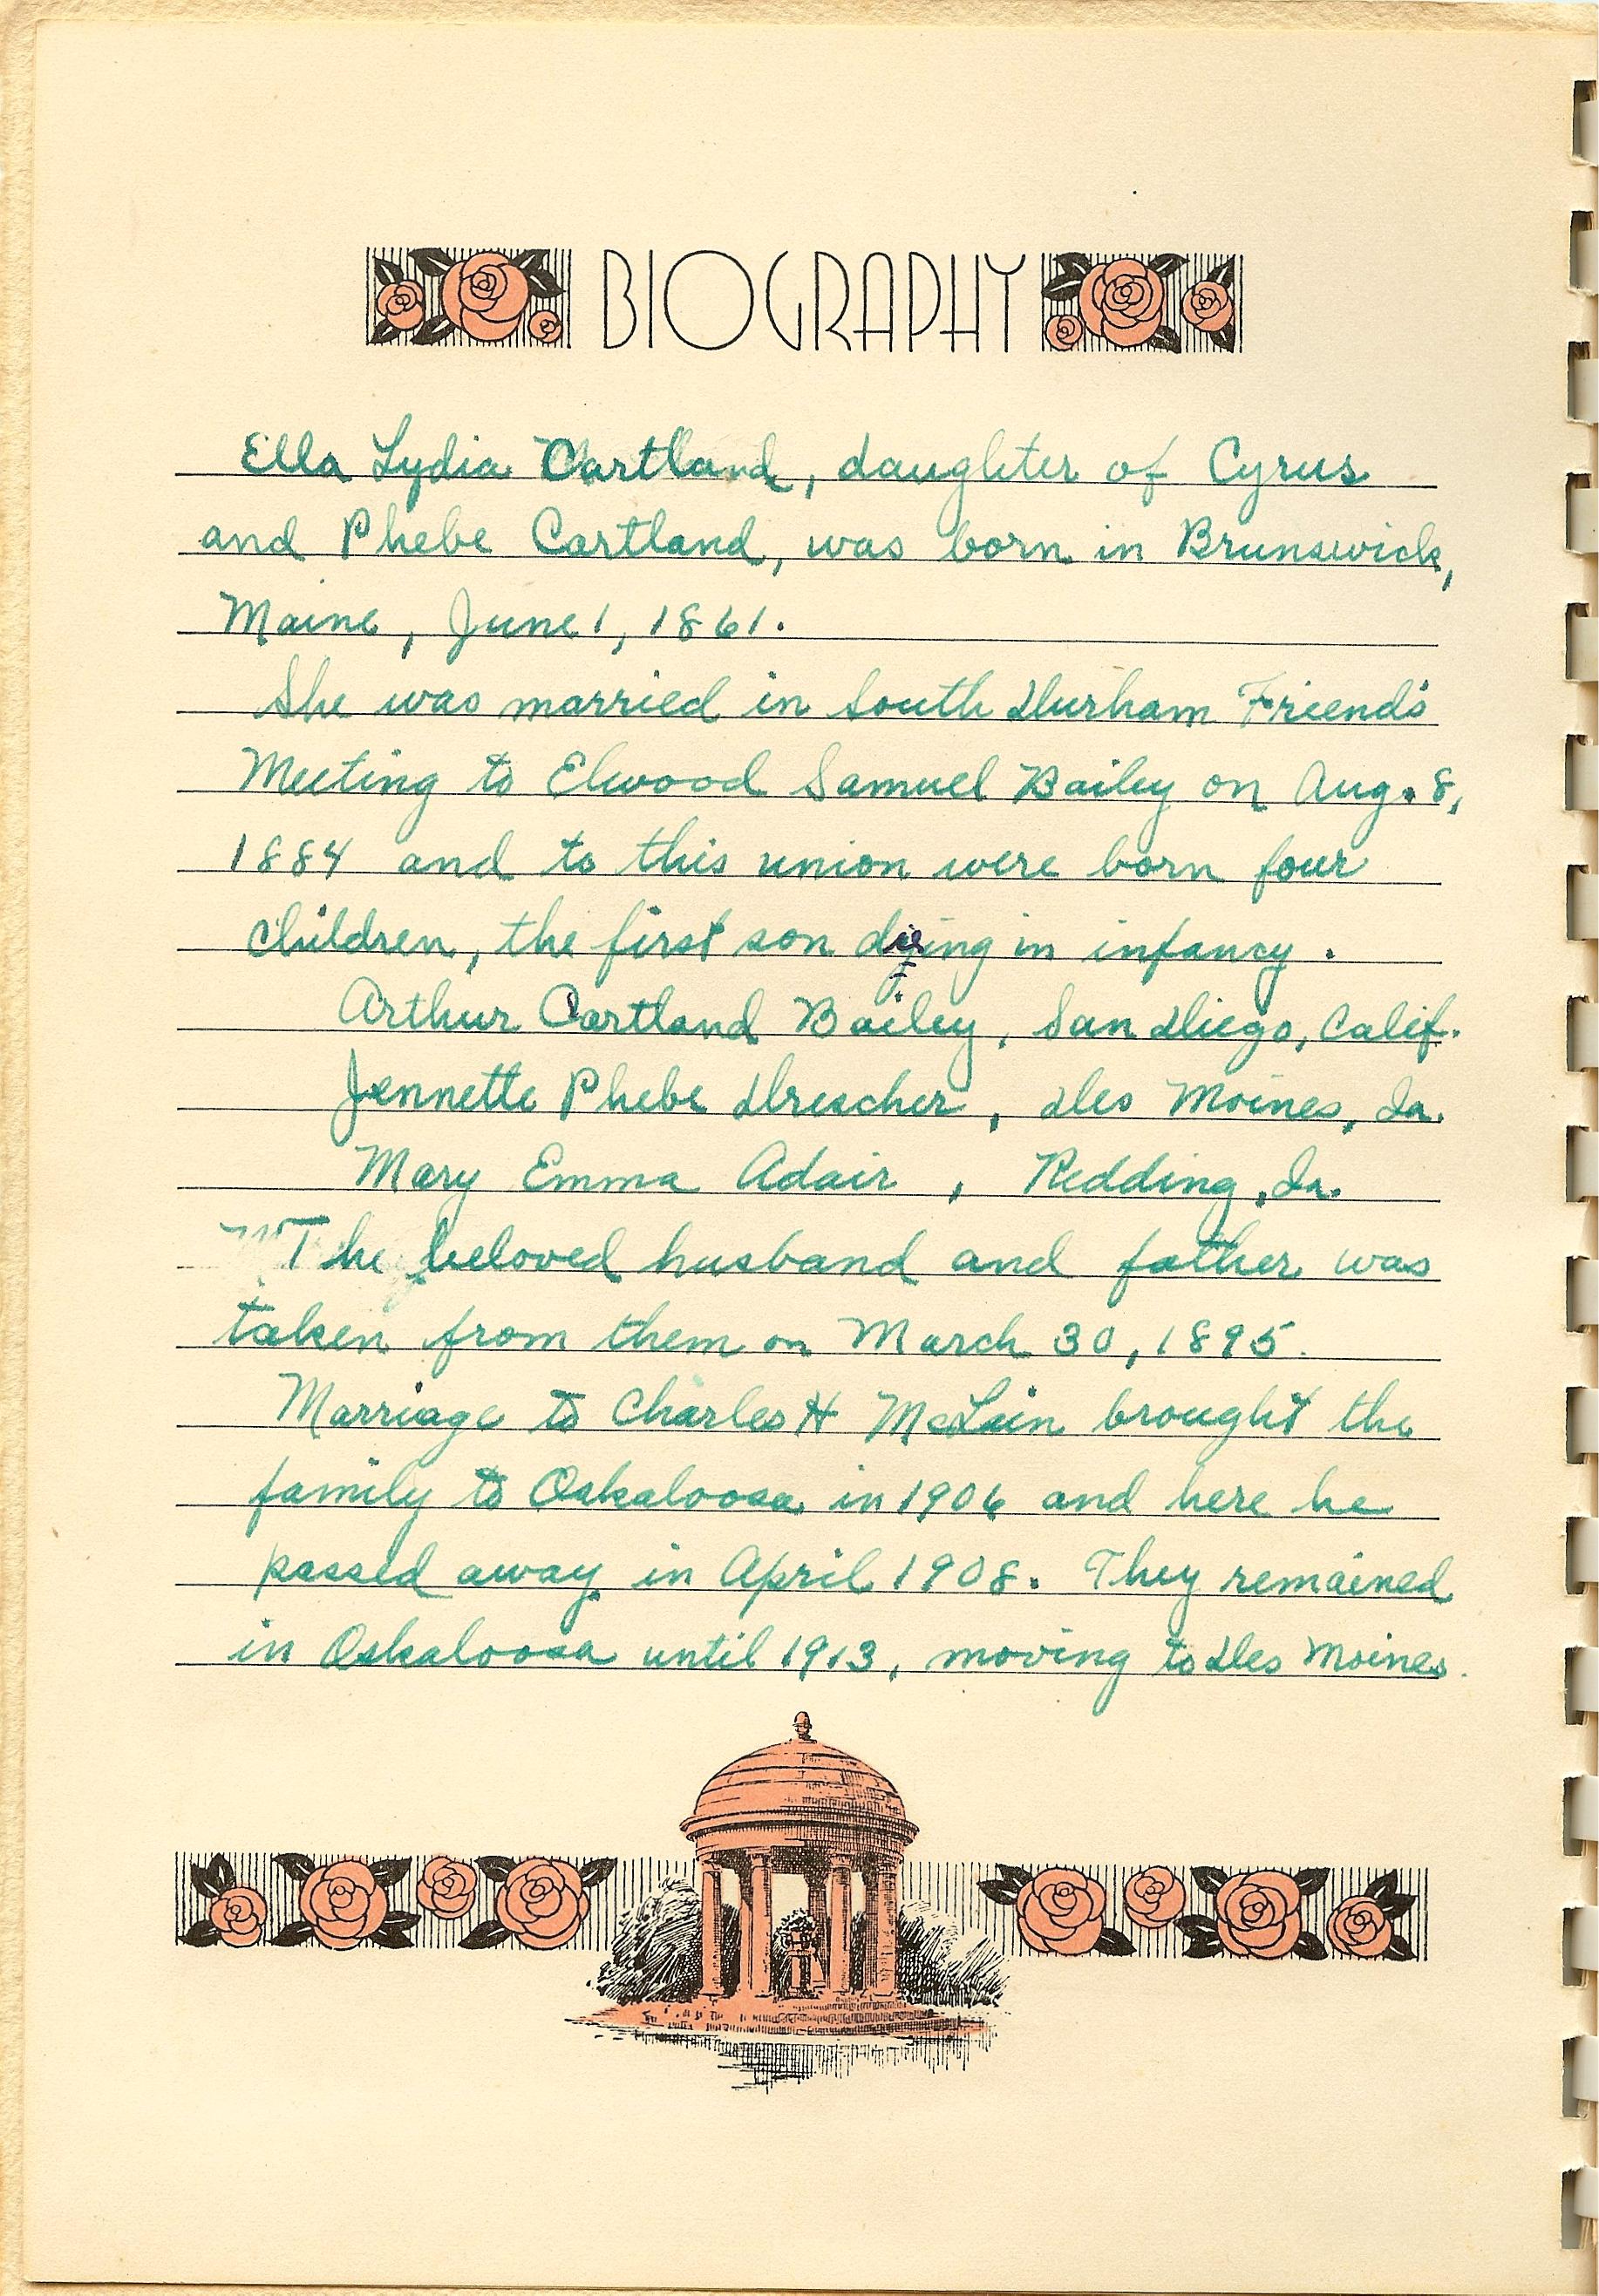 BIOGRAPHY
Ella Lydia Cartland, daughter of Cyrus
and Phebe Cartland, was born in Brunswick,
Maine, June 1, 1861.
She was married in South Durham Friend's
Meeting to Elwood Samuel Bailey on Aug. 8,
1884 and to this union were born four
children, the first son dieing in infancy.
Arthur Cartland Bailey, San Diego, Calif.
Jennette Phebe Drescher, Des Moines, Ia.
Mary Emma Adair, Redding, Ia.
The beloved husband and father was
taken from them on March 30, 1895.
Marriage to Charles H McLain brought the
family to Oskaloosa in 1906 and here he
passed away in April 1908. They remained
in Oskaloosa until 1913, moving to Des Moines.